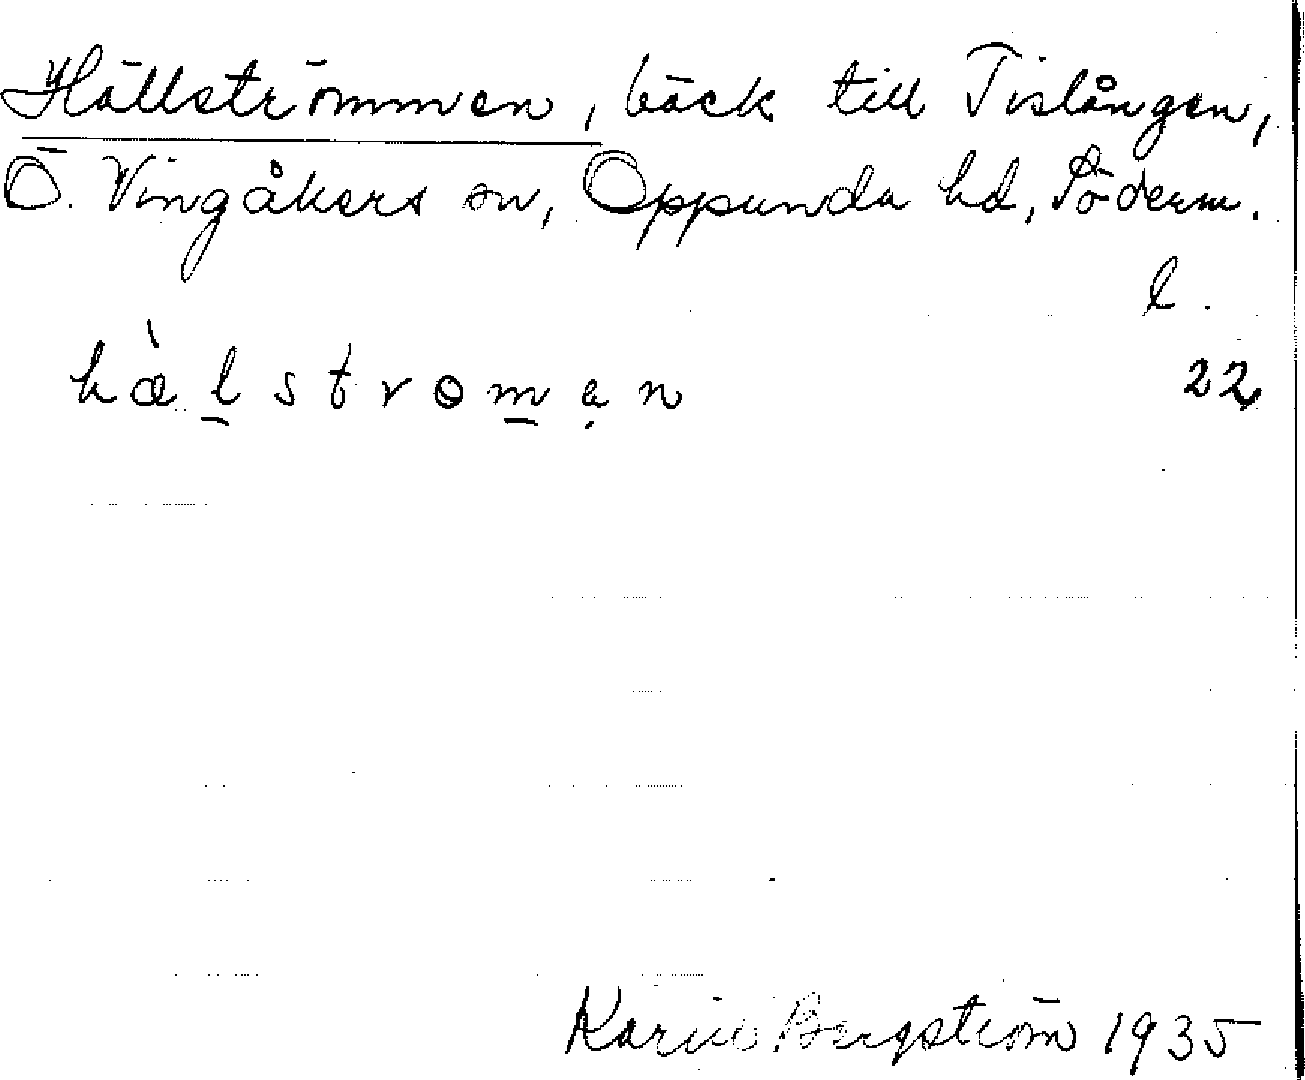 Hällströmmen, bäck till Tislången,
Ö. Vingåkers sn, Oppunda hd, Söderm.
l.
hæ̀l̲strɵm̲ạn 22
Karin Bergström 1935